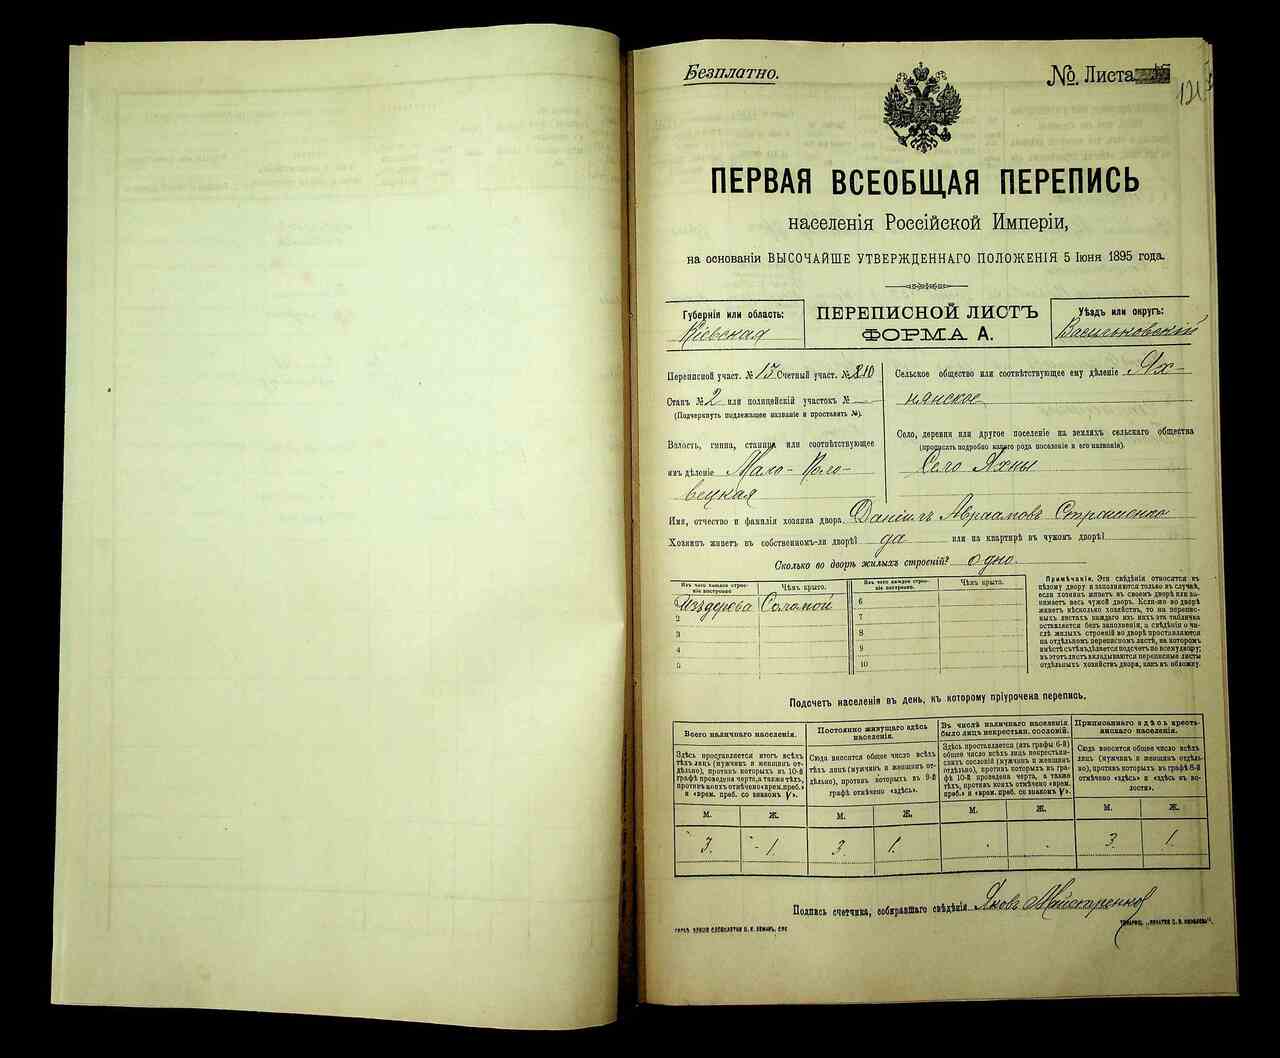 Безплатно.
№ Листа
121
ПЕРВАЯ ВСЕОБЩАЯ ПЕРЕПИСЬ
населенія Россійской Имперіи,
на основаніи ВЫСОЧАЙШЕ УТВЕРЖДЕННАГО ПОЛОЖЕНІЯ 5 Іюня 1895 года.
Губернія или область:
Кіевская
ПЕРЕПИСНОЙ ЛИСТЪ
ФОРМА А.
Уѣздъ или округъ:
Васильковскій
Переписной участ. № 15 Счетный участ. № 210
Станъ № 2 или полицейскій участокъ №
(Подчеркнуть подлежащее названіе и проставить №).
Волость, гмина, станица или соотвѣтствующее
имъ дѣленіе Мало-Поло-
вецкая
Сельское общество или соотвѣтствующее ему дѣленіе Ях-
нянское
Село, деревня или другое поселеніе на земляхъ сельскаго общества
(прописать подробно какого рода поселеніе и его названіе).
Село Яхны
Имя, отчество и фамилія хозяина двора. Даніилъ Авраамовъ
Хозяинъ живетъ въ собственномъ-ли дворѣ? да или на квартирѣ въ чужомъ дворѣ?
Сколько во дворѣ жилыхъ строеній? одно.
Изъ чего каждое строе-
ніе построено
Чѣмъ крыто.
Изъ чего каждое строе-
ніе построено.
Чѣмъ крыто.
Изъ дерева Соломой
2
3
4
5
6
7
8
9
10
Примѣчаніе. Эти свѣдѣнія относятся къ
цѣлому двору и заполняются только въ случаѣ,
если хозяинъ живетъ въ своемъ дворѣ или за-
нимаетъ весь чужой дворъ. Если-же во дворѣ
живетъ нѣсколько хозяйствъ, то на перепис-
ныхъ листахъ каждаго изъ нихъ эта табличка
оставляется безъ заполненія, а свѣдѣнія о чи-
слѣ жилыхъ строеній во дворѣ проставляются
на отдѣльномъ переписномъ листѣ, на которомъ
вмѣстѣ съ тѣмъ дѣлается подсчетъ по всему двору;
въ этотъ листъ вкладываются переписные листы
отдѣльныхъ хозяйствъ двора, какъ въ обложку.
Подсчетъ населенія въ день, къ которому пріурочена перепись.
Всего наличнаго населенія.
Постоянно живущаго здѣсь
населенія.
Въ числѣ наличнаго населенія
было лицъ некрестьян. сословій.
Приписаннаго здѣсь кресть-
янскаго населенія.
Здѣсь проставляется итогъ всѣхъ
тѣхъ лицъ (мужчинъ и женщинъ от-
дѣльно), противъ которыхъ въ 10-й
графѣ проведена черта, а также тѣхъ,
противъ коихъ отмѣчено «врем. преб.»
и «врем. преб. со знакомъ V».
Сюда вносится общее число всѣхъ
тѣхъ лицъ (мужчинъ и женщинъ от-
дѣльно), противъ которыхъ въ 9-й
графѣ отмѣчено «здѣсь».
Здѣсь проставляется (изъ графы 6-й)
общее число всѣхъ лицъ некрестьян-
скихъ сословій (мужчинъ и женщинъ
отдѣльно), противъ которыхъ въ гра-
фѣ 10-й проведена черта, а также
тѣхъ, противъ коихъ отмѣчено «врем.
преб.» и «врем. преб. со знакомъ V».
Сюда вносится общее число всѣхъ
лицъ (мужчинъ и женщинъ отдѣль-
но), противъ которыхъ въ графѣ 8-й
отмѣчено «здѣсь» и «здѣсь въ во-
лости».
М. Ж. М. Ж. М. Ж. М. Ж.
3. 1. 3. 1. - - 3. 1.
Подпись счетчика, собиравшаго свѣдѣнія Яковъ